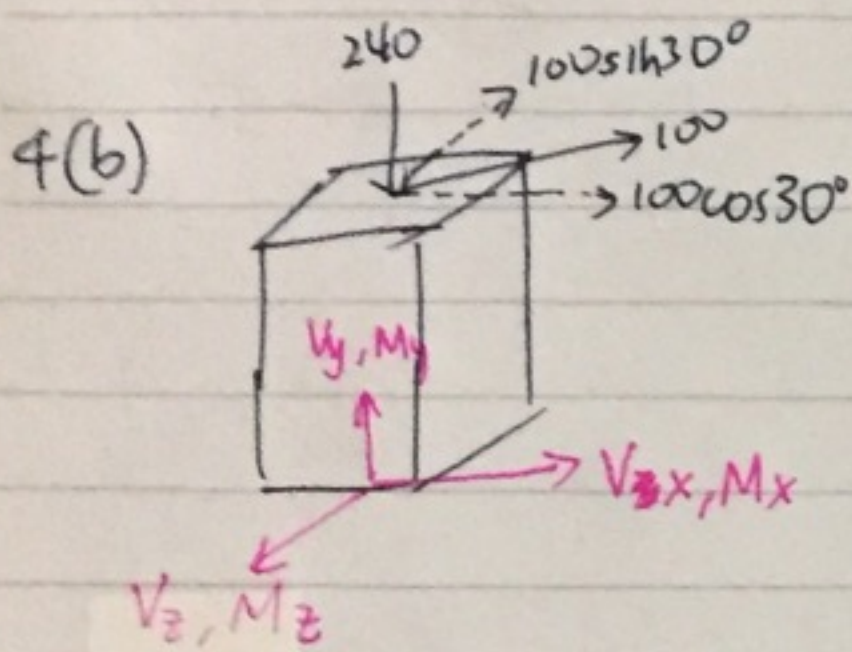 240
100sin30°
4(b)
100
100cos30°
Vy, My
Vx, Mx
Vz, Mz